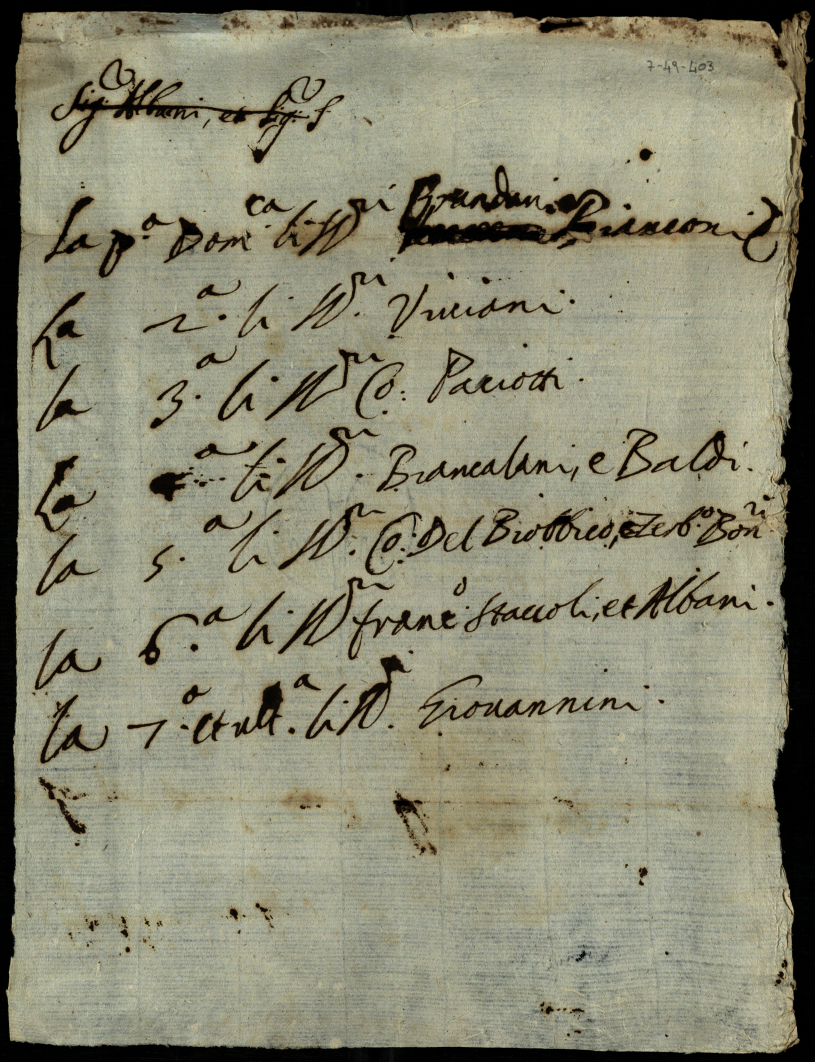 7-49-403
Sig.r Albani, et Sig.r S
La p.a Dom.ca li SS.ri Brandani, e Bianconi
La 2.a li SS.ri Viviani.
la 3.a li SS.ri Co: Paciotti.
La li SS.ri Brancalani, e Baldi.
la 5.a li SS.ri Co: Del Biobbico, e Zerb.o Bon.ri
la 6.a li SS.ri Franc.o Staccoli, et Albani.
la 7.a et ult.a li SS.ri Giovannini.